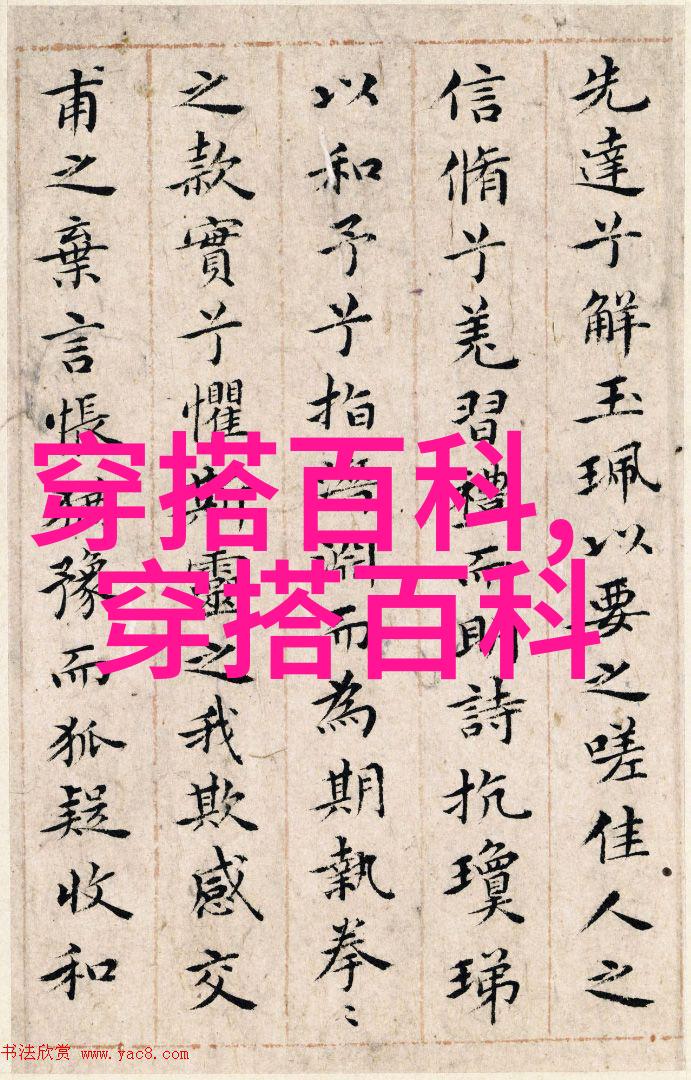 先達兮解玉珮以要之嗟佳人之
信脩兮羌習禮而明詩抗瓊珶
以和予兮指潛淵而為期執拳〻
之款實兮懼斯靈之我欺感交
甫之棄言悵猶豫而狐疑收和
穿搭百科,
穿搭百科
书法欣赏 www.yac8.com